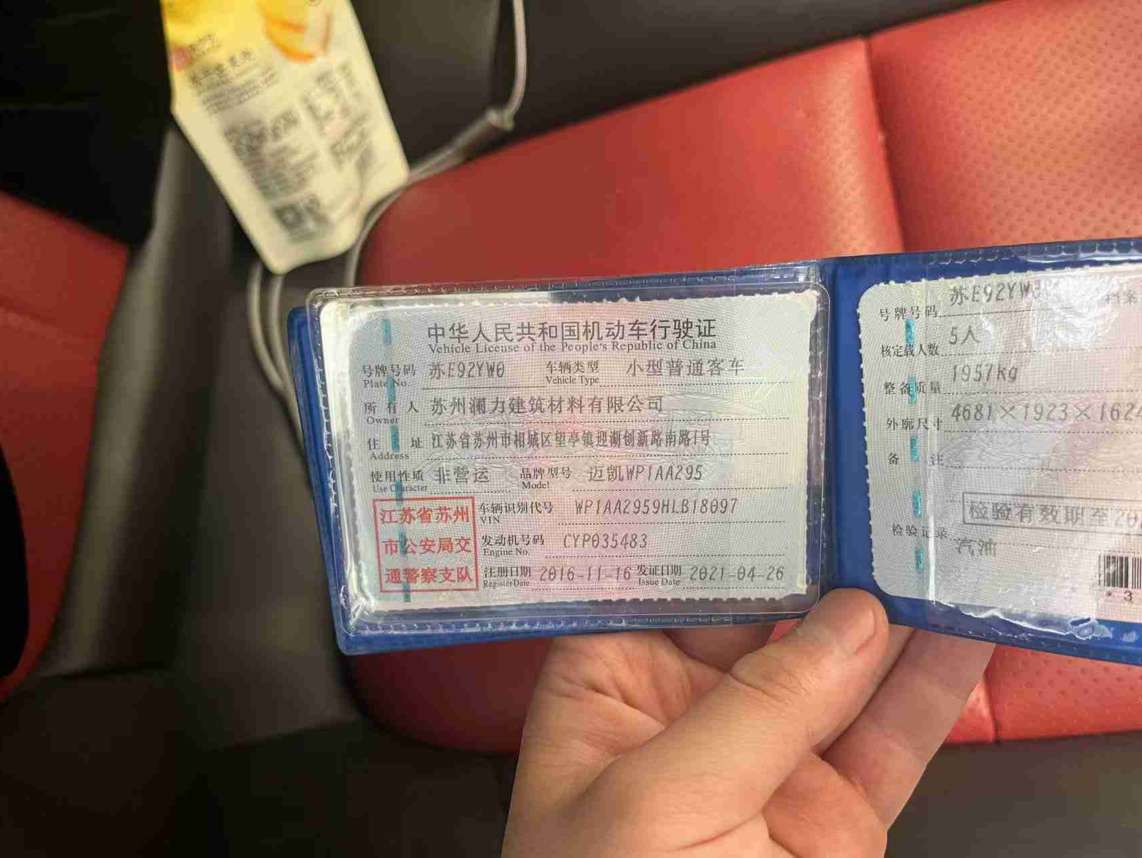 中华人民共和国机动车行驶证
Vehicle License of the People's Republic of China
号牌号码 苏E92YW0 车辆类型 小型普通客车
Plate No. Vehicle Type
所有人 苏州澜力建筑材料有限公司
Owner
住址 江苏省苏州市相城区望亭镇迎湖创新路南路1号
Address
使用性质 非营运 品牌型号 迈凯WP1AA295
Use Character Model
车辆识别代号 WP1AA2959HLB18097
VIN
发动机号码 CYP035483
Engine No.
注册日期 2016-11-16 发证日期 2021-04-26
Register Date Issue Date
江苏省苏州
市公安局交
通警察支队
号牌号码 苏E92YW0
核定载人数 5人
整备质量 1957kg
外廓尺寸 4681×1923×162
备注
检验有效期至20
检验记录
汽油